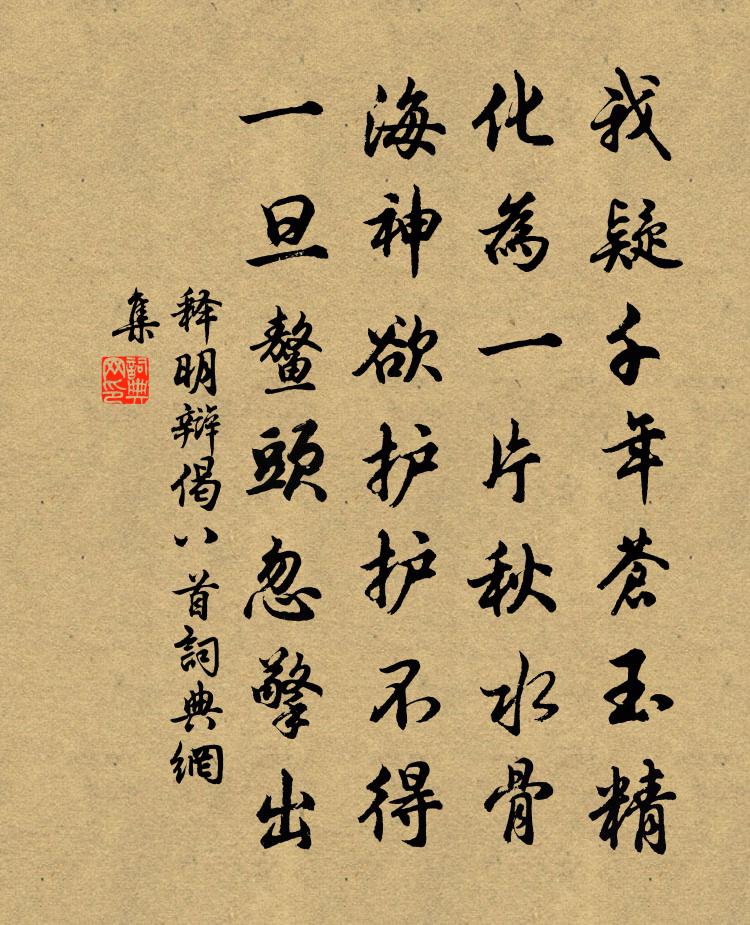 我疑千年蒼玉精
化為一片秋水骨
海神欲护护不得
一旦鼇頭忽擎出
释明辯偈八首詞典網
集
詞典
网印